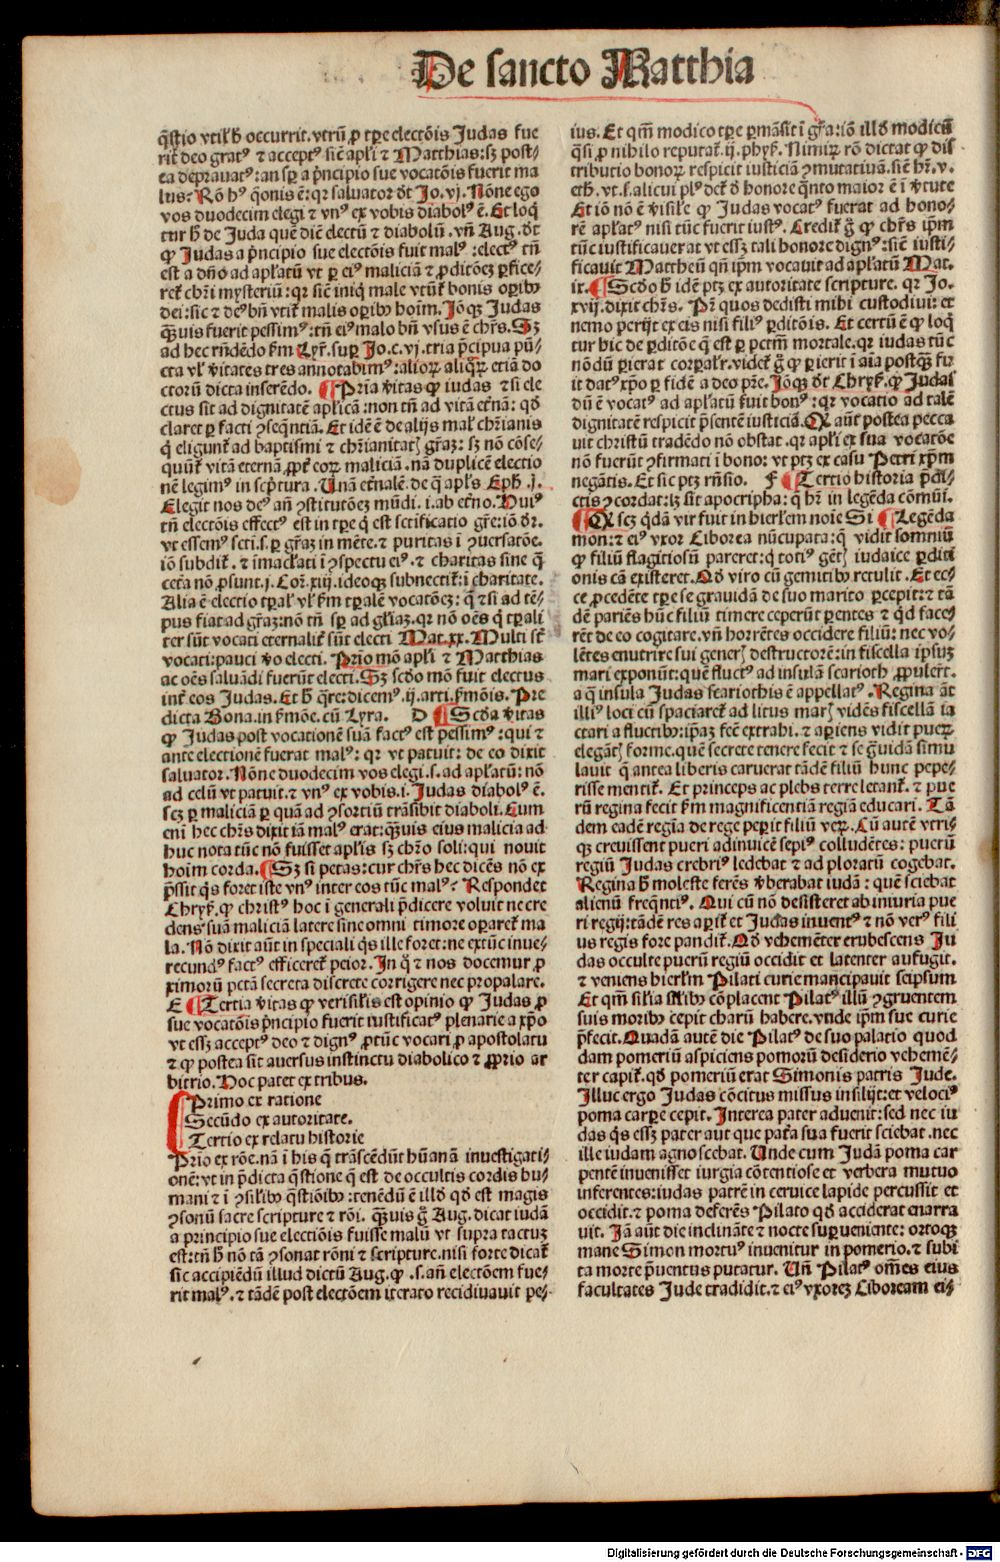 De sancto Matthia
q̃stio vtilꝭ h̃ occurrit. vtrũ ꝓ tꝑe electõis Judas fue
rit deo gratꝰ ⁊ acceptꝰ sic̃ apl̃i ⁊ Matthias: sꝫ post⸗
ea deprauatꝰ: an sꝑ a p̃ncipio sue vocatõis fuerit ma
lus: Rõ hꝰ q̃onis ẽ: qꝛ saluator dt̃ Jo. vj. Nõne ego
vos duodecim elegi ⁊ vnꝰ ex vobis diabolꝰ ẽ. Et loq̃
tur h̃ de Juda quẽ diẽ electũ ⁊ diabolũ. vñ Aug. dt̃
ꝙ Judas a p̃ncipio sue electõis fuit malꝰ: electꝰ tñ
est a dño ad apl̃atũ vt ꝑ eiꝰ maliciã ⁊ ꝓditõeꝫ ꝑfice⸗
ret̃ chr̃i mysteriũ: qꝛ sic̃ iniq̃ male vtũt̃ bonis oꝑibꝰ
dei: sic ⁊ deꝰ bñ vtit̃ malis oꝑibꝰ hoĩm. Jõqꝫ Judas
q̃uis fuerit pessimꝰ: tñ eiꝰ malo bñ vsus ẽ chr̃s. Sꝫ
ad hec rñdẽdo ẜm Lyr̃. suꝑ Jo. c. vj. tria p̃cipua pũ⸗
cta vl̃ ṽitates tres annotabimꝰ: alioꝝ aliq̃ꝝ etiã do
ctorũ dicta inserẽdo. ¶ Pria ṽitas ꝙ iudas ⁊si ele
ctus sit ad dignitatẽ apl̃icã: non tñ ad vitã et̃nã: qd̃
claret ꝑ facti ꝯseq̃ntiã. Et idẽ ẽ de alijs mal̃ chr̃ianis
q̃ eligunt̃ ad baptismi ⁊ chr̃ianitatꝭ gr̃aꝫ: sꝫ nõ cõse⸗
quũt̃ vitã eternã ꝓpt̃ eoꝝ maliciã. nã duplicẽ electio
nẽ legimꝰ in scp̃tura. Unã et̃nalẽ. de q̃ apl̃s Eph. j.
Elegit nos deꝰ añ ꝯstitutõeꝫ mũdi. i. ab et̃no. Huiꝰ
tñ electõis effectꝰ est in tꝑe q̃ est sctificatio gr̃e: iõ dr̃.
vt essemꝰ scti. s. ꝑ gr̃aꝫ in mẽte. ⁊ puritas ĩ ꝯuersatõe.
iõ subdit̃. ⁊ imacl̃ati ĩ ꝯspectu eiꝰ. ⁊ charitas sine q̃
cet̃a nõ ꝓsunt. j. Cor̃. xiij. ideoqꝫ subnectit̃: ĩ charitate.
Alia ẽ electio tꝑal̃ vl̃ ẜm tꝑalẽ vocatõeꝫ: q̃ ⁊si ad tẽ⸗
pus fiat ad gr̃aꝫ: nõ tñ sꝑ ad gl̃iaꝫ. qꝛ nõ oẽs q̃ tꝑali
ter sũt vocati eternalit̃ sũt electi Mat. xx. Multi st̃
vocati: pauci ṽo electi. Prio mõ apl̃i ⁊ Matthias
ac oẽs saluãdi fuerũt electi. Sꝫ scd̃o mõ fuit electus
int̃ eos Judas. Et h̃ q̃re: dicemꝰ. ij. arti. ẜmõis. Pre
dicta Bona. in ẜmõe. cũ Lyra. D ¶ Scd̃a ṽitas
ꝙ Judas post vocationẽ suã factꝰ est pessimꝰ: qui ⁊
ante electionẽ fuerat malꝰ: qꝛ vt patuit: de eo dixit
saluator. Nõne duodecim vos elegi. s. ad apl̃atũ: nõ
ad celũ vt patuit. ⁊ vnꝰ ex vobis. i. Judas diabolꝰ ẽ.
scꝫ ꝑ maliciam ꝑ quã ad ꝯsortiũ trãsibit diaboli. Cum
eni hec chr̃s dixit iã malꝰ erat: q̃uis eius malicia ad
huc nota tũc nõ fuisset apl̃is sꝫ chr̃o soli: qui nouit
hoĩm corda. ¶ Sꝫ si petas: cur chr̃s hec dicẽs nõ ex
p̃ssit q̃s foret iste vnꝰ inter eos tũc malꝰ: Respondet
Chryẜ. ꝙ christꝰ hoc ĩ generali p̃dicere voluit ne cre
dens suã maliciã latere sine omni timore oꝑaret̃ ma
la. Nõ dixit aũt in speciali q̃s ille foret: ne extũc inue⸗
recundꝰ factꝰ efficeret̃ peior. In q̃ ⁊ nos docemur ꝓ
ximorũ pctã secreta discrete corrigere nec propalare.
E ¶ Tertia ṽitas ꝙ verisil̃is est opinio ꝙ Judas ꝓ
sue vocatõis p̃ncipio fuerit iustificatꝰ plenarie a xp̃o
vt essꝫ acceptꝰ deo ⁊ dignꝰ ꝓtũc vocari ꝓ apostolatu
⁊ ꝙ postea sit auersus instinctu diabolico ⁊ ꝓprio ar
bitrio. Hoc patet ex tribus.
Primo ex ratione
Secũdo ex autoritate.
Tertio ex relatu historie
Prio ex rõe. nã ĩ his q̃ trãscẽdũt hũanã inuestigati⸗
onẽ: vt in p̃dicta q̃stione q̃ est de occultis cordis hu⸗
mani ⁊ ĩ ꝯsil̃ibꝰ q̃stiõibꝰ: tenẽdũ ẽ illd̃ qd̃ est magis
ꝯsonũ sacre scripture ⁊ rõi. q̃uis g̃ Aug. dicat iudã
a principio sue electiõis fuisse malũ vt supra tactuꝫ
est: tñ h̃ nõ tã ꝯsonat rõni ⁊ scripture. nisi forte dicat̃
sic accipiẽdũ illud dictũ Aug. ꝙ .s. añ electõem fue⸗
rit malꝰ. ⁊ tãdẽ post electõem iterato recidiuauit pe⸗
ius. Et qm̃ modico tꝑe ꝑmãsit ĩ gr̃a: iõ illd̃ modicũ
q̃si ꝓ nihilo reputat̃. ij. phyẜ. Nimiꝝ rõ dictat ꝙ dis
tributio bonoꝝ respicit iusticiã ꝯmutatiuã. sic̃ hr̃. v.
eth. vt .s. alicui plꝰ det̃ d̃ honore q̃nto maior ẽ ĩ ṽtute
Et iõ nõ ẽ ṽisil̃e ꝙ Judas vocatꝰ fuerat ad hono⸗
rẽ apl̃atꝰ nisi tũc fuerit iustꝰ. Credit̃ g̃ ꝙ chr̃s ip̃m
tũc iustificauerat vt essꝫ tali honore dignꝰ: sic̃ iusti⸗
ficauit Mattheũ qñ ip̃m vocauit ad apl̃atũ Mat.
ix. ¶ Scd̃o h̃ idẽ ptꝫ ex autoritate scripture. qꝛ Jo.
xvij. dixit chr̃s. Pr̃ quos dedisti mihi custodiui: et
nemo perijt ex eis nisi filiꝰ ꝑditõis. Et certũ ẽ ꝙ loq̃
tur hic de ꝑditõe q̃ est ꝑ pctm̃ mortale. qꝛ iudas tũc
nõdũ ꝑierat corꝑalr̃. videt̃ g̃ ꝙ ꝑierit ĩ aĩa postqꝫ fu
it datꝰ xp̃o ꝑ fidẽ a deo pr̃e. Jõqꝫ dt̃ Chryẜ. ꝙ Judas
dũ ẽ vocatꝰ ad apl̃atũ fuit bonꝰ: qꝛ vocatio ad talẽ
dignitatẽ respicit p̃sentẽ iusticiã. Qꝫ aũt postea pecca
uit christũ tradẽdo nõ obstat. qꝛ apl̃i ex sua vocatõe
nõ fuerũt ꝯfirmati ĩ bono: vt ptꝫ ex casu Petri xp̃m
negãtis. Et sic ptꝫ rñsio. F ¶ Tertio historia p̃di⸗
ctis ꝯcordat: lꝫ sit apocripha: q̃ hr̃ in legẽda cõmũi.
¶ Qꝫ scꝫ q̃dã vir fuit in hierl̃em noĩe Si ¶ Legẽda
mon: ⁊ eiꝰ vxor Ciborea nũcupata: q̃ vidit somniũ
ꝙ filiũ flagitiosũ pareret: q̃ totiꝰ gẽtꝭ iudaice ꝑditi
onis cã existeret. Qd̃ viro cũ gemitibꝰ retulit. Et ec⸗
ce ꝓcedẽte tꝑe se grauidã de suo marito ꝑcepit: ⁊ tã
dẽ pariẽs hũc filiũ timere ceperũt ꝑentes ⁊ q̃d face⸗
rẽt de eo cogitare. vñ horrẽtes occidere filiũ: nec vo⸗
lẽtes enutrire sui generꝭ destructorẽ: in fiscella ip̃suꝫ
mari exponũt: quẽ fluctꝰ ad insulã scarioth ꝓpulert̃.
a q̃ insula Judas scariothis ẽ appellatꝰ. Regina ãt
illiꝰ loci cũ spaciaret̃ ad litus marꝭ vidẽs fiscellã ia
ctari a fluctibꝰ: ip̃aꝫ fec̃ extrahi. ⁊ aꝑiens vidit pueꝝ
elegãtꝭ forme. quẽ secrete tenere fecit ⁊ se g̃uidã simu
lauit q̃ antea liberis caruerat tãdẽ filiũ hunc pepe⸗
risse mentit̃. Et princeps ac plebs terre letant̃. ⁊ pue
rũ regina fecit ẜm magnificentiã regiã educari. Tã
dem eadẽ regĩa de rege peꝑit filiũ veꝝ. Cũ autẽ vtri⸗
qꝫ creuissent pueri adinuicẽ sepiꝰ colludẽtes: puerũ
regiũ Judas crebriꝰ ledebat ⁊ ad ploratũ cogebat.
Regina h̃ moleste ferẽs ṽberabat iudã: quẽ sciebat
alienũ freq̃ntiꝰ. Qui cũ nõ desisteret ab iniuria pue
ri regij: tãdẽ res aꝑit̃ et Judas inuentꝰ ⁊ nõ verꝰ fili
us regis fore pandit̃. Qd̃ vehemẽter erubescens Ju
das occulte puerũ regiũ occidit et latenter aufugit.
⁊ veniens hierl̃m Pilati curie mancipauit seipsum
Et qm̃ sil̃ia sil̃ibꝰ cõplacent Pilatꝰ illũ ꝯgruentem
suis moribꝰ cepit charũ habere. vnde ip̃m sue curie
p̃fecit. Quadã autẽ die Pilatꝰ de suo palatio quod
dam pomeriũ aspiciens pomorũ desiderio vehemẽ⸗
ter capit̃. qd̃ pomeriũ erat Simonis patris Jude.
Illuc ergo Judas cõcitus missus insilijt: et velociꝰ
poma carꝑe cepit. Interea pater aduenit: sed nec iu
das q̃s essꝫ pater aut que pat̃a sua fuerit sciebat. nec
ille iudam agnoscebat. Unde cum Judã poma car
pentẽ inuenisset iurgia cõtentiose et verbera mutuo
inferentes: iudas patrẽ in ceruice lapide percussit et
occidit. ⁊ poma deferẽs Pilato qd̃ acciderat enarra
uit. Jã aũt die inclinãte ⁊ nocte suꝑueniente: ortoqꝫ
mane Simon mortuꝰ inuenitur in pomerio. ⁊ subi
ta morte p̃uentus putatur. Uñ Pilatꝰ om̃es eius
facultates Jude tradidit. ⁊ eiꝰ vxoreꝫ Ciboream ei⸗
Digitalisierung gefördert durch die Deutsche Forschungsgemeinschaft - DFG